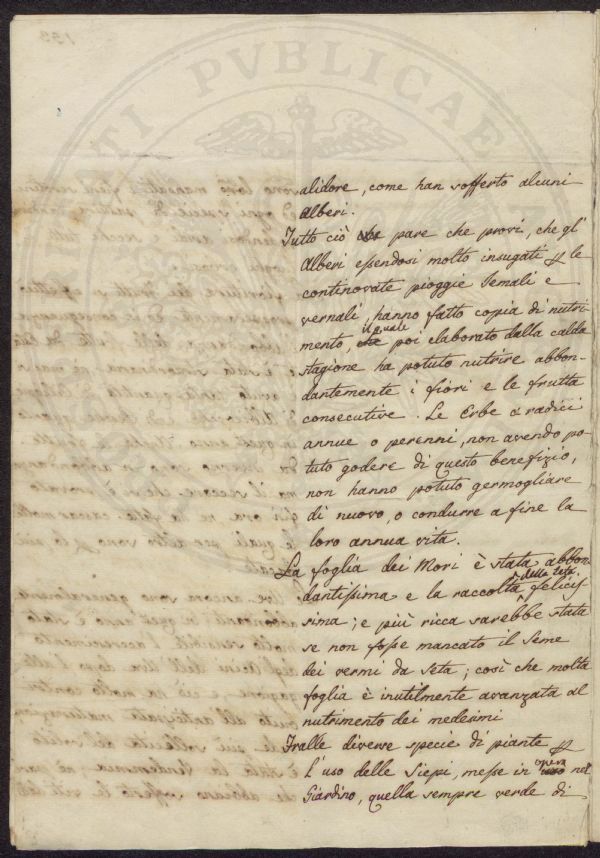 alidore, come han sofferto alcuni
Alberi.
Tutto ciò pare che provi, che gl'
Alberi essendosi molto insugati le
continovate pioggie Iemali e
vernali, hanno fatto copia di nutri-
mento, il quale poi elaborato dalla calda
stagione ha potuto nutrire abbon-
dantemente i fiori e le frutta
consecutive. Le Erbe a radici
annue o perenni, non avendo po-
tuto godere di questo benefizio,
non hanno potuto germogliare
di nuovo, o condurre a fine la
loro annua vita.
La foglia dei Mori è stata abbon-
dantissima e la raccolta della Seta felicis
sima; e più ricca sarebbe stata
se non fosse mancato il Seme
dei vermi da Seta; così che molta
foglia è inutilmente avanzata al
nutrimento dei medesimi
Tralle diverse specie di piante
l'uso delle Siepi, messe in opera nel
Giardino, quella sempre verde di